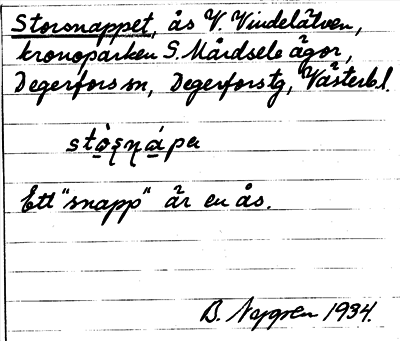 Storsnappet, ås V. Vindelälven,
kronoparken S. Mårdsele ägor,
Degerfors sn, Degerforstg, Västerb.l.
Ett "snapp" är en ås.
B. Nygren 1934.